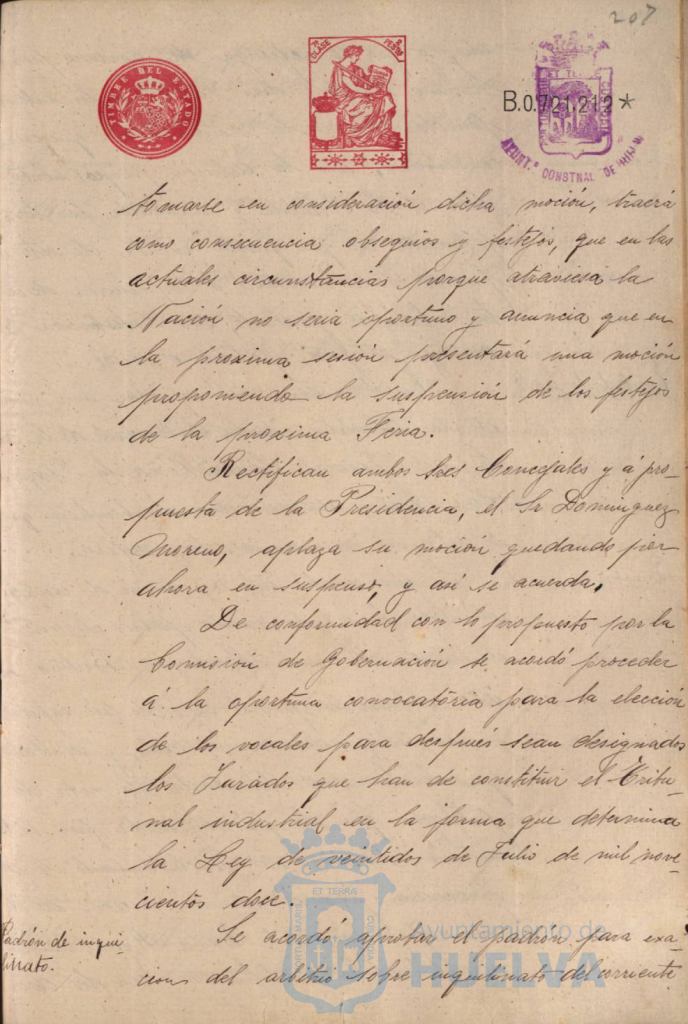 207
TIMBRE DEL ESTADO
7ª CLASE 2 PESTAS
B.0.721.212*
AYUNT.º CONSTNAL DE HUELVA
tomarse en consideración dicha moción, traerá
como consecuencia obsequios y festejos, que en las
actuales circunstancias porque atraviesa la
Nación no seria oportuno y anuncia que en
la proxima sesión presentará una moción
proponiendo la suspensión de los festejos
de la proxima Feria.
Rectifican ambos Sres Concejales y á pro-
puesta de la Presidencia, el Sr Dominguez
Moreno, aplaza su moción quedando por
ahora en suspenso, y asi se acuerda.
De conformidad con lo propuesto por la
Comisión de Gobernación se acordó proceder
á la oportuna convocatoria para la elección
de los vocales para después sean designados
los Jurados que han de constituir el Tribu-
nal industrial en la forma que determina
la Ley de veintidos de Julio de mil nove-
cientos doce.
Padrón de inqui-
linato.
Se acordó aprobar el padrón para exa-
cion del arbitrio sobre inquilinato del corriente
ET TERRA
Ayuntamiento de
HUELVA